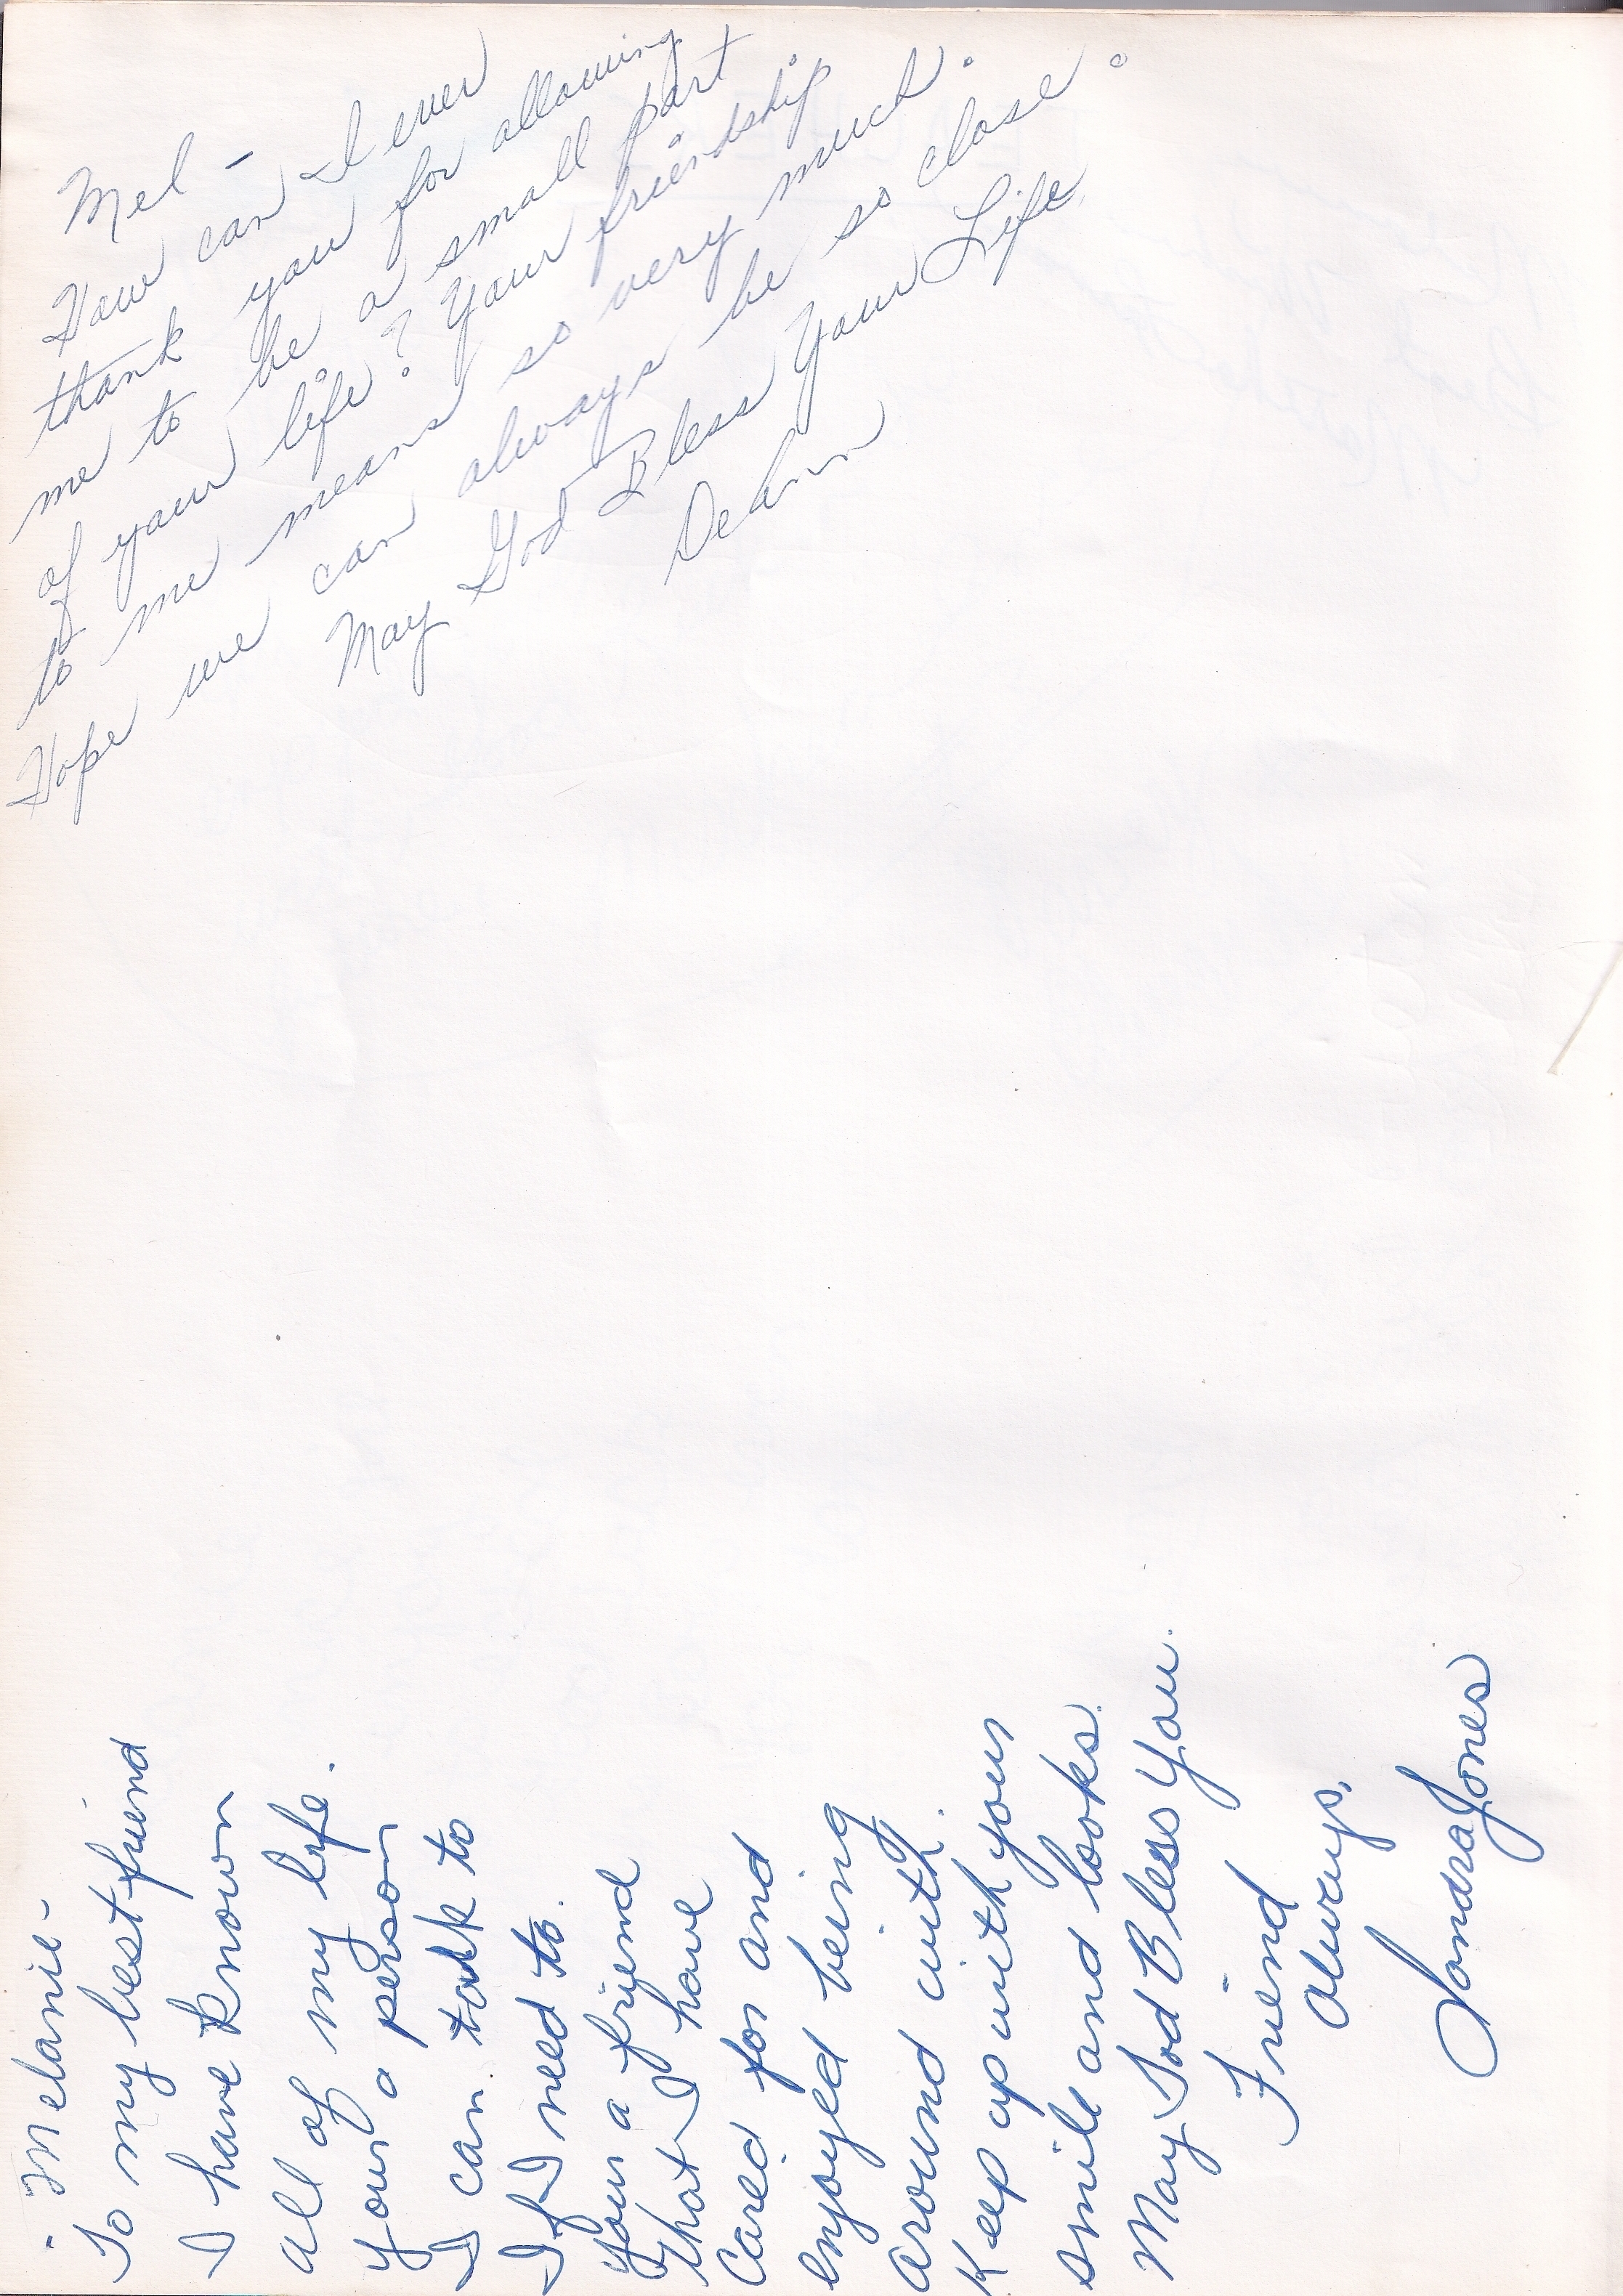 Mel -
How can I ever
thank you for allowing
me to be a small part
of your life? Your friendship
to me means so very much.
Hope we can always be so close.
May God Bless Your Life.
DeAnn
Melanie -
To my best friend
I have known
all of my life.
Your a person
I can talk to
If I need to.
Your a friend
that I have
cared for and
enjoyed being
around with.
Keep up with your
smile and looks.
May God Bless You.
Friend
always,
Sondra Jones